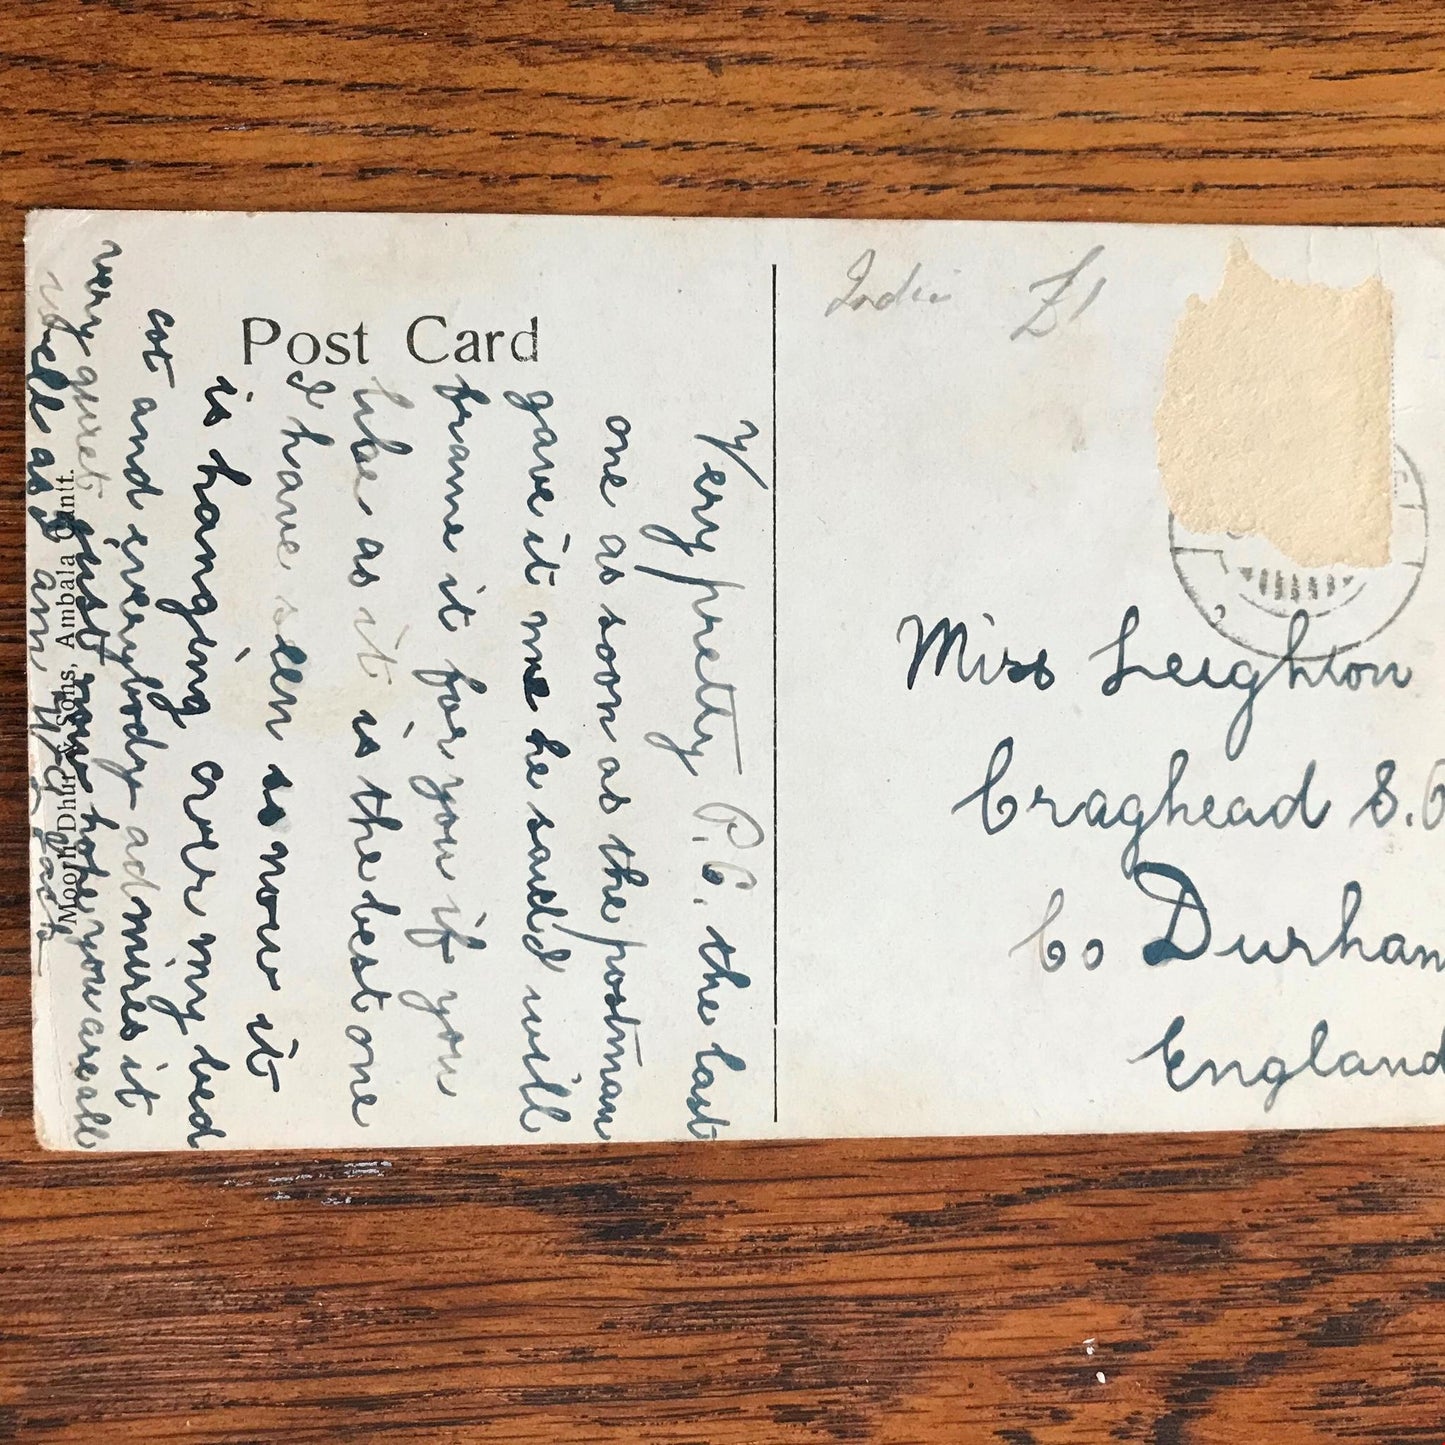 Post Card
Very pretty P.C. the last
one as soon as the postman
gave it me he said I will
frame it for you if you
like as it is the best one
I have seen so now it
is hanging over my bed
cot and everybody admires it
very quiet just now hope you are all
well as I am
Moolji Dhur & Sons, Ambala Cantt.
India £1
Miss Leighton
Craghead S.
Co Durham
England